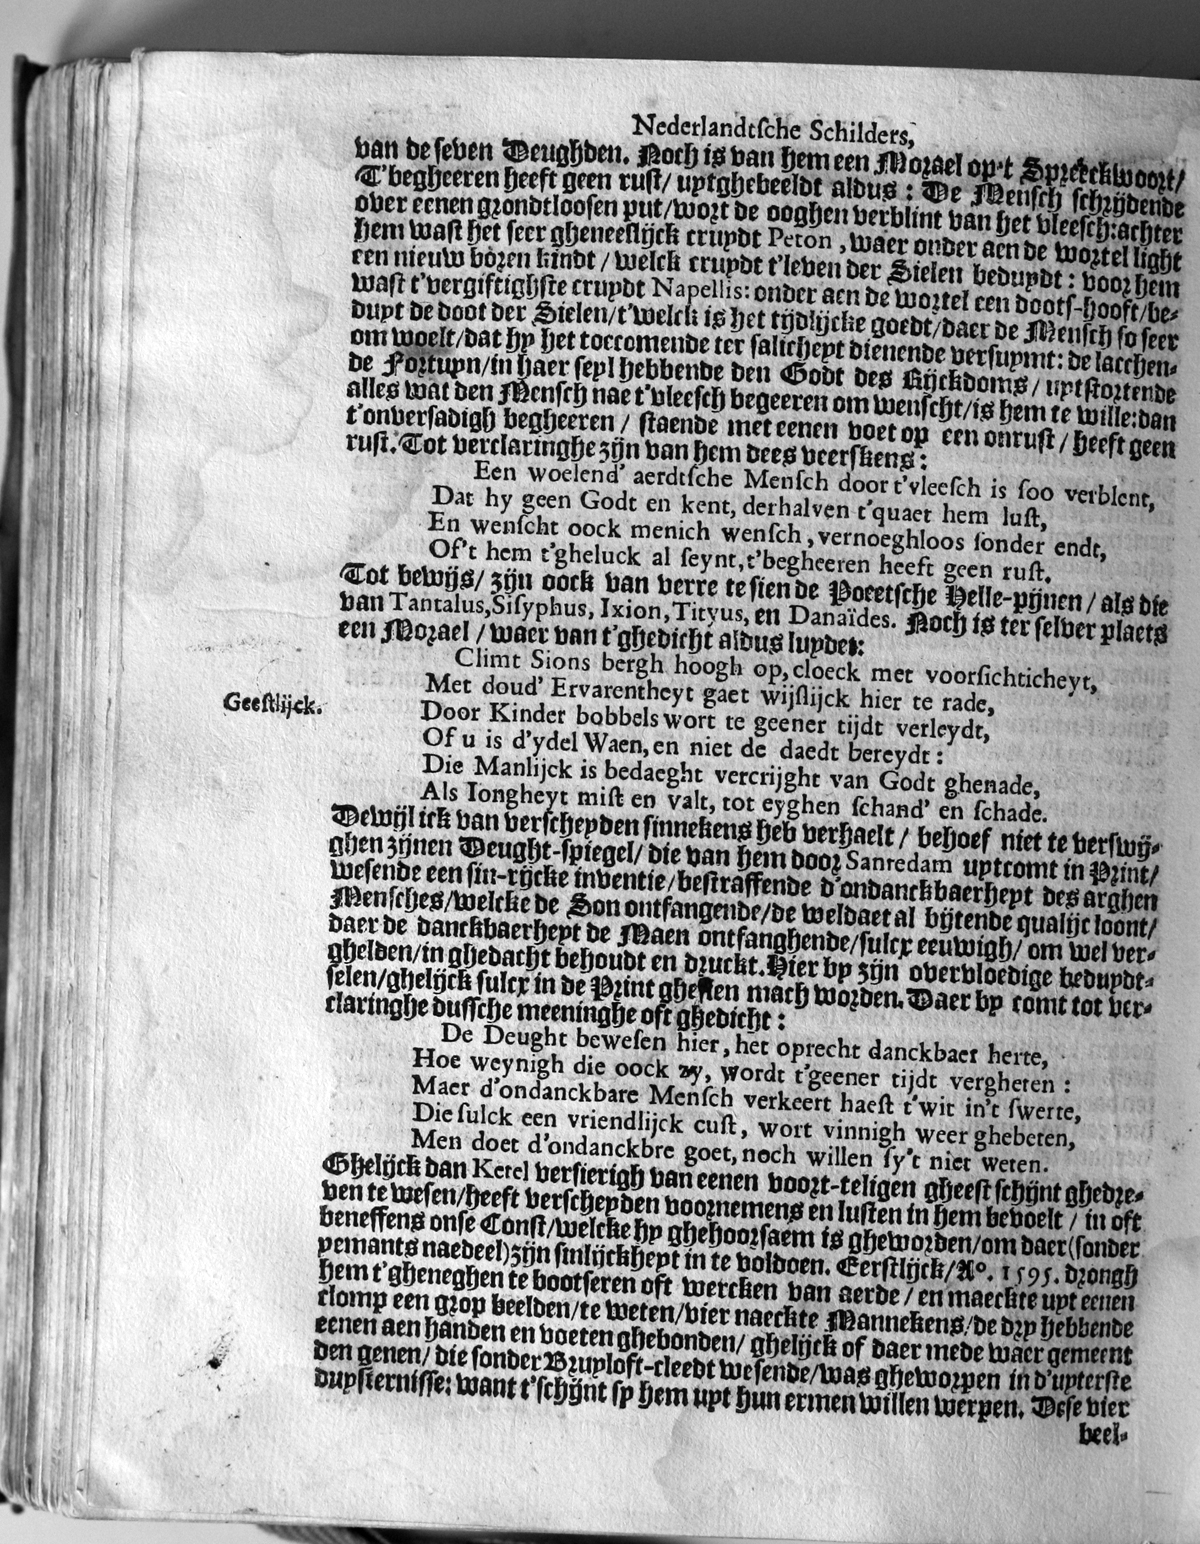 Nederlandtsche Schilders,
van de seven Deughden. Noch is van hem een Morael op't Spreeckwoort/
T'begheeren heeft geen rust/ uytghebeeldt aldus: De Mensch schrijdende
over eenen grondtloosen put/wort de ooghen verblint van het vleesch:achter
hem wast het seer gheneeslijck cruydt Peton, waer onder aen de wortel light
een nieuw boren kindt/welck cruydt t'leven der Sielen beduydt: voor hem
wast t'vergiftighste cruydt Napellis: onder aen de wortel een doots-hooft/be-
duyt de doot der Sielen/t'welck is het tijdlijcke goedt/daer de Mensch so seer
om woelt/dat hy het toecomende ter salicheyt dienende versuymt: de lacchen-
de Fortuyn/in haer seyl hebbende den Godt des Rijckdoms/ uytstortende
alles wat den Mensch nae t'vleesch begeeren om wenscht/is hem te wille:dan
t'onversadigh begheeren/ staende met eenen voet op een onrust/ heeft geen
rust. Tot verclaringhe zijn van hem dees veerskens:
Een woelend' aerdtsche Mensch door t'vleesch is soo verblent,
Dat hy geen Godt en kent, derhalven t'quaet hem lust,
En wenscht oock menich wensch, vernoeghloos sonder endt,
Of't hem t'gheluck al seynt, t'begheeren heeft geen rust.
Tot bewijs/ zijn oock van verre te sien de Poeetsche Helle-pijnen/als die
van Tantalus, Sisyphus, Ixion, Tityus, en Danaïdes. Noch is ter selver plaets
een Morael/waer van t'ghedicht aldus luydet:
Climt Sions bergh hoogh op, cloeck met voorsichticheyt,
Met doud' Ervarentheyt gaet wijslijck hier te rade,
Geestlijck.
Door Kinder bobbels wort te geener tijdt verleydt,
Of u is d'ydel Waen, en niet de daedt bereydt:
Die Manlijck is bedaeght vercrijght van Godt ghenade,
Als Iongheyt mist en valt, tot eyghen schand' en schade.
Dewijl ick van verscheyden sinnekens heb verhaelt/ behoef niet te verswij-
ghen zijnen Deught-spiegel/die van hem door Sanredam uytcomt in Print/
wesende een sin-rijcke inventie/bestraffende d'ondanckbaerheyt des arghen
Mensches/welcke de Son ontfangende/de weldaet al bijtende qualijc loont/
daer de danckbaerheyt de Maen ontfanghende/sulcx eeuwigh/ om wel ver-
ghelden/in ghedacht behoudt en druckt. Hier by zijn overvloedige beduydt-
selen/ghelijck sulcx in de Print ghesien mach worden. Daer by comt tot ver-
claringhe dussche meeninghe oft ghedicht:
De Deught bewesen hier, het oprecht danckbaer herte,
Hoe weynigh die oock zy, wordt t'geener tijdt vergheten:
Maer d'ondanckbare Mensch verkeert haest t'wit in't swerte,
Die sulck een vriendlijck cust, wort vinnigh weer ghebeten,
Men doet d'ondanckbre goet, noch willen sy't niet weten.
Ghelijck dan Ketel versierigh van eenen voort-teligen gheest schijnt ghedre-
ven te wesen/heeft verscheyden voornemens en lusten in hem bevoelt/ in oft
beneffens onse Const/welcke hy ghehoorsaem is gheworden/om daer(sonder
yemants naedeel)zijn sinlijckheyt in te voldoen. Eerstlijck/Ao. 1595. drongh
hem t'gheneghen te bootseren oft wercken van aerde/en maeckte uyt eenen
clomp een grop beelden/te weten/vier naeckte Mannekens/de dry hebbende
eenen aen handen en voeten ghebonden/ghelijck of daer mede waer gemeent
den genen/die sonder Bruyloft-cleedt wesende/was gheworpen in d'uyterste
duysternisse: want t'schijnt sy hem uyt hun ermen willen werpen. Dese vier
beel-